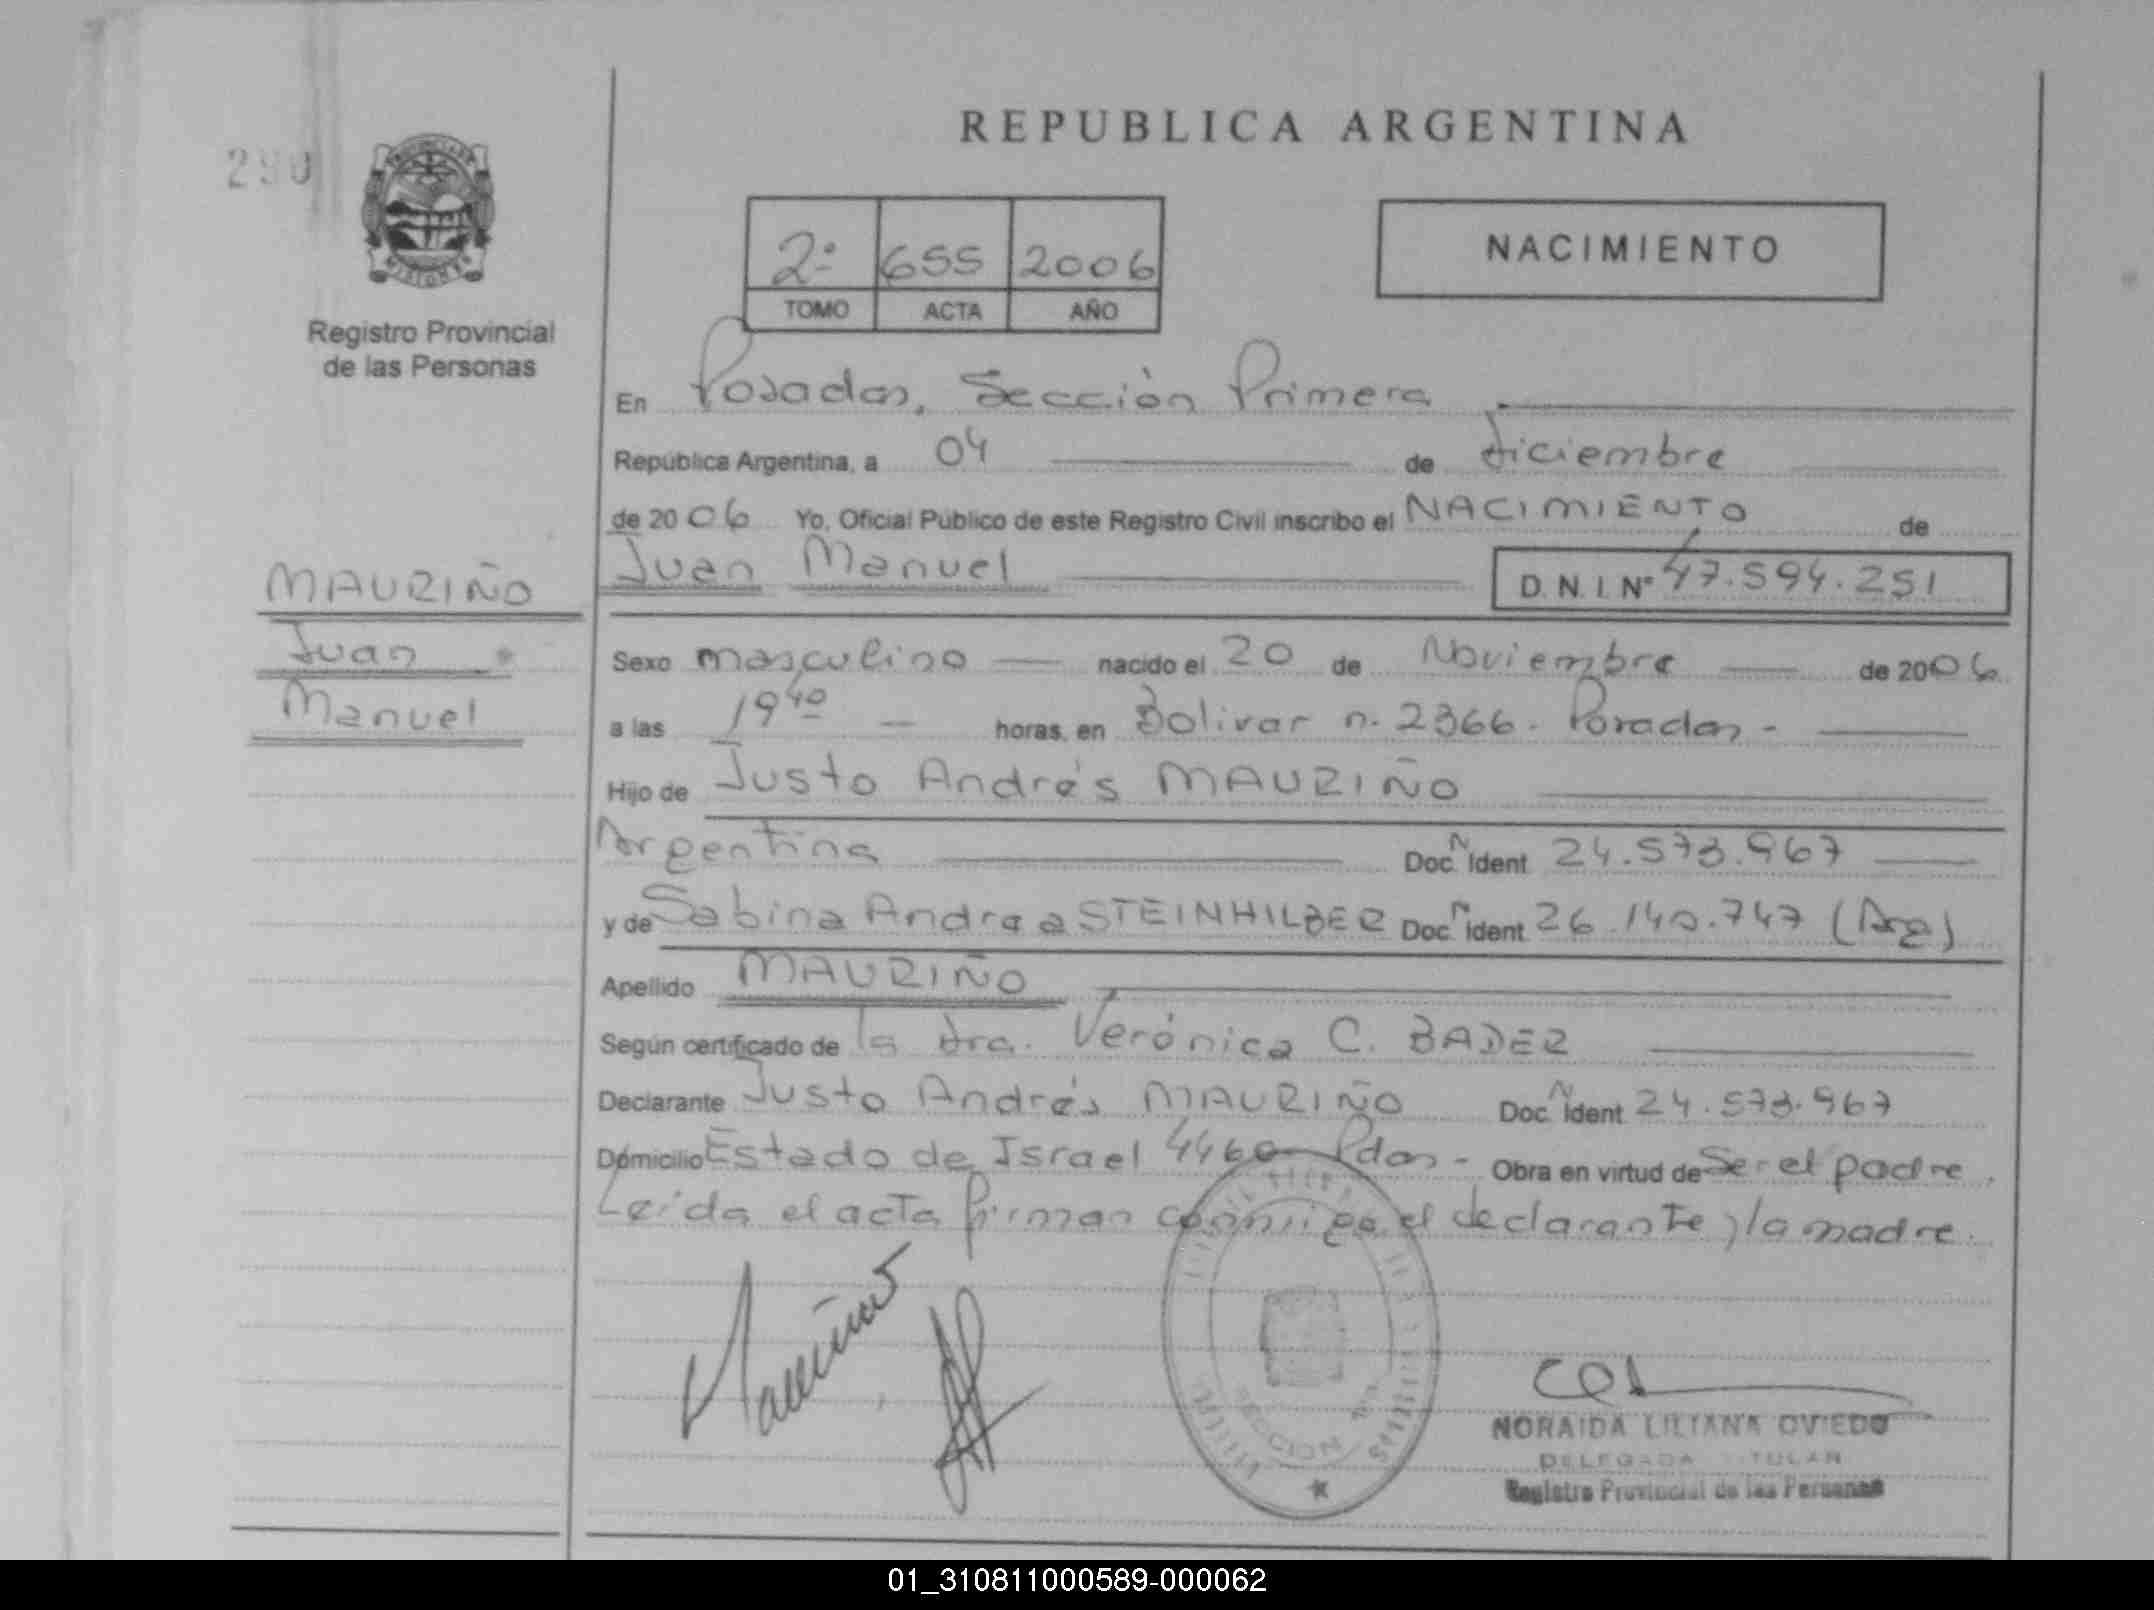 REPUBLICA ARGENTINA
290
2º 655 2006
TOMO ACTA AÑO
NACIMIENTO
Registro Provincial
de las Personas
En Posadas, Sección Primera
República Argentina, a 04 de diciembre
de 2006 Yo, Oficial Público de este Registro Civil inscribo el NACIMIENTO de
Juan Manuel D.N.I. Nº 47.594.251
MAURIÑO
Juan
Manuel
Sexo masculino nacido el 20 de Noviembre de 2006
a las 19 40 horas, en Bolivar n. 2366. Posadas -
Hijo de Justo Andrés MAURIÑO
Argentina Doc. N Ident 24.573.967
y de Sabina Andrea STEINHILBER Doc. N Ident 26.140.747 (Arg)
Apellido MAURIÑO
Según certificado de la dra. Verónica C. BADER
Declarante Justo Andrés MAURIÑO Doc. N Ident 24.573.967
Domicilio Estado de Israel 4460 Pdas - Obra en virtud de Ser el padre.
Leída el acta firman conmigo el declarante y la madre.
Mauriño
SECCION 1ra
NORAIDA LILIANA OVIEDO
DELEGADA TITULAR
Registro Provincial de las Personas
01_310811000589-000062